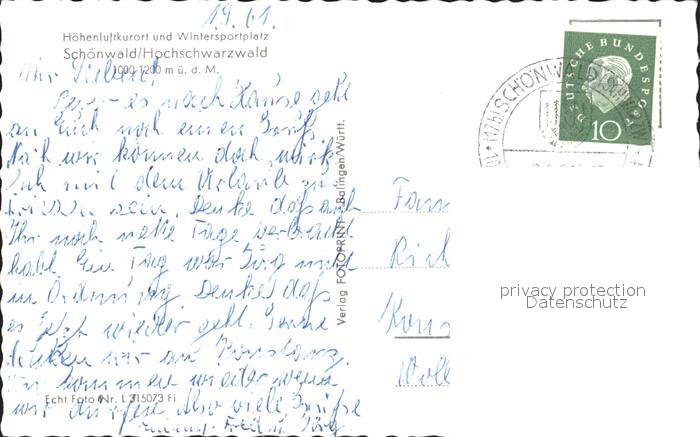 19.61.
Höhenluftkurort und Wintersportplatz
Schönwald/Hochschwarzwald
1000-1200 m ü. d. M.
Ihr Lieben!
es nach Hause geht
an Euch noch einen Gruß.
Auch wir können doch
mit dem Urlaub zu-
frieden sein. Denke daß auch
Ihr noch nette Tage verbracht
habt. Ein Tag war Jörg nicht
in Ordnung. Denke daß
es jetzt wieder geht. Gerne
denken wir an Konstanz.
kommen wieder wenn
wir dürfen. Also viele Grüße
Jörg.
Echt Foto Nr. L 315073 Fi
Verlag FOTOPRINT Balingen/Württ.
DEUTSCHE BUNDESPOST
10
(17b) SCHÖNWALD (SCHWARZW
Fam
Kons
privacy protection
Datenschutz